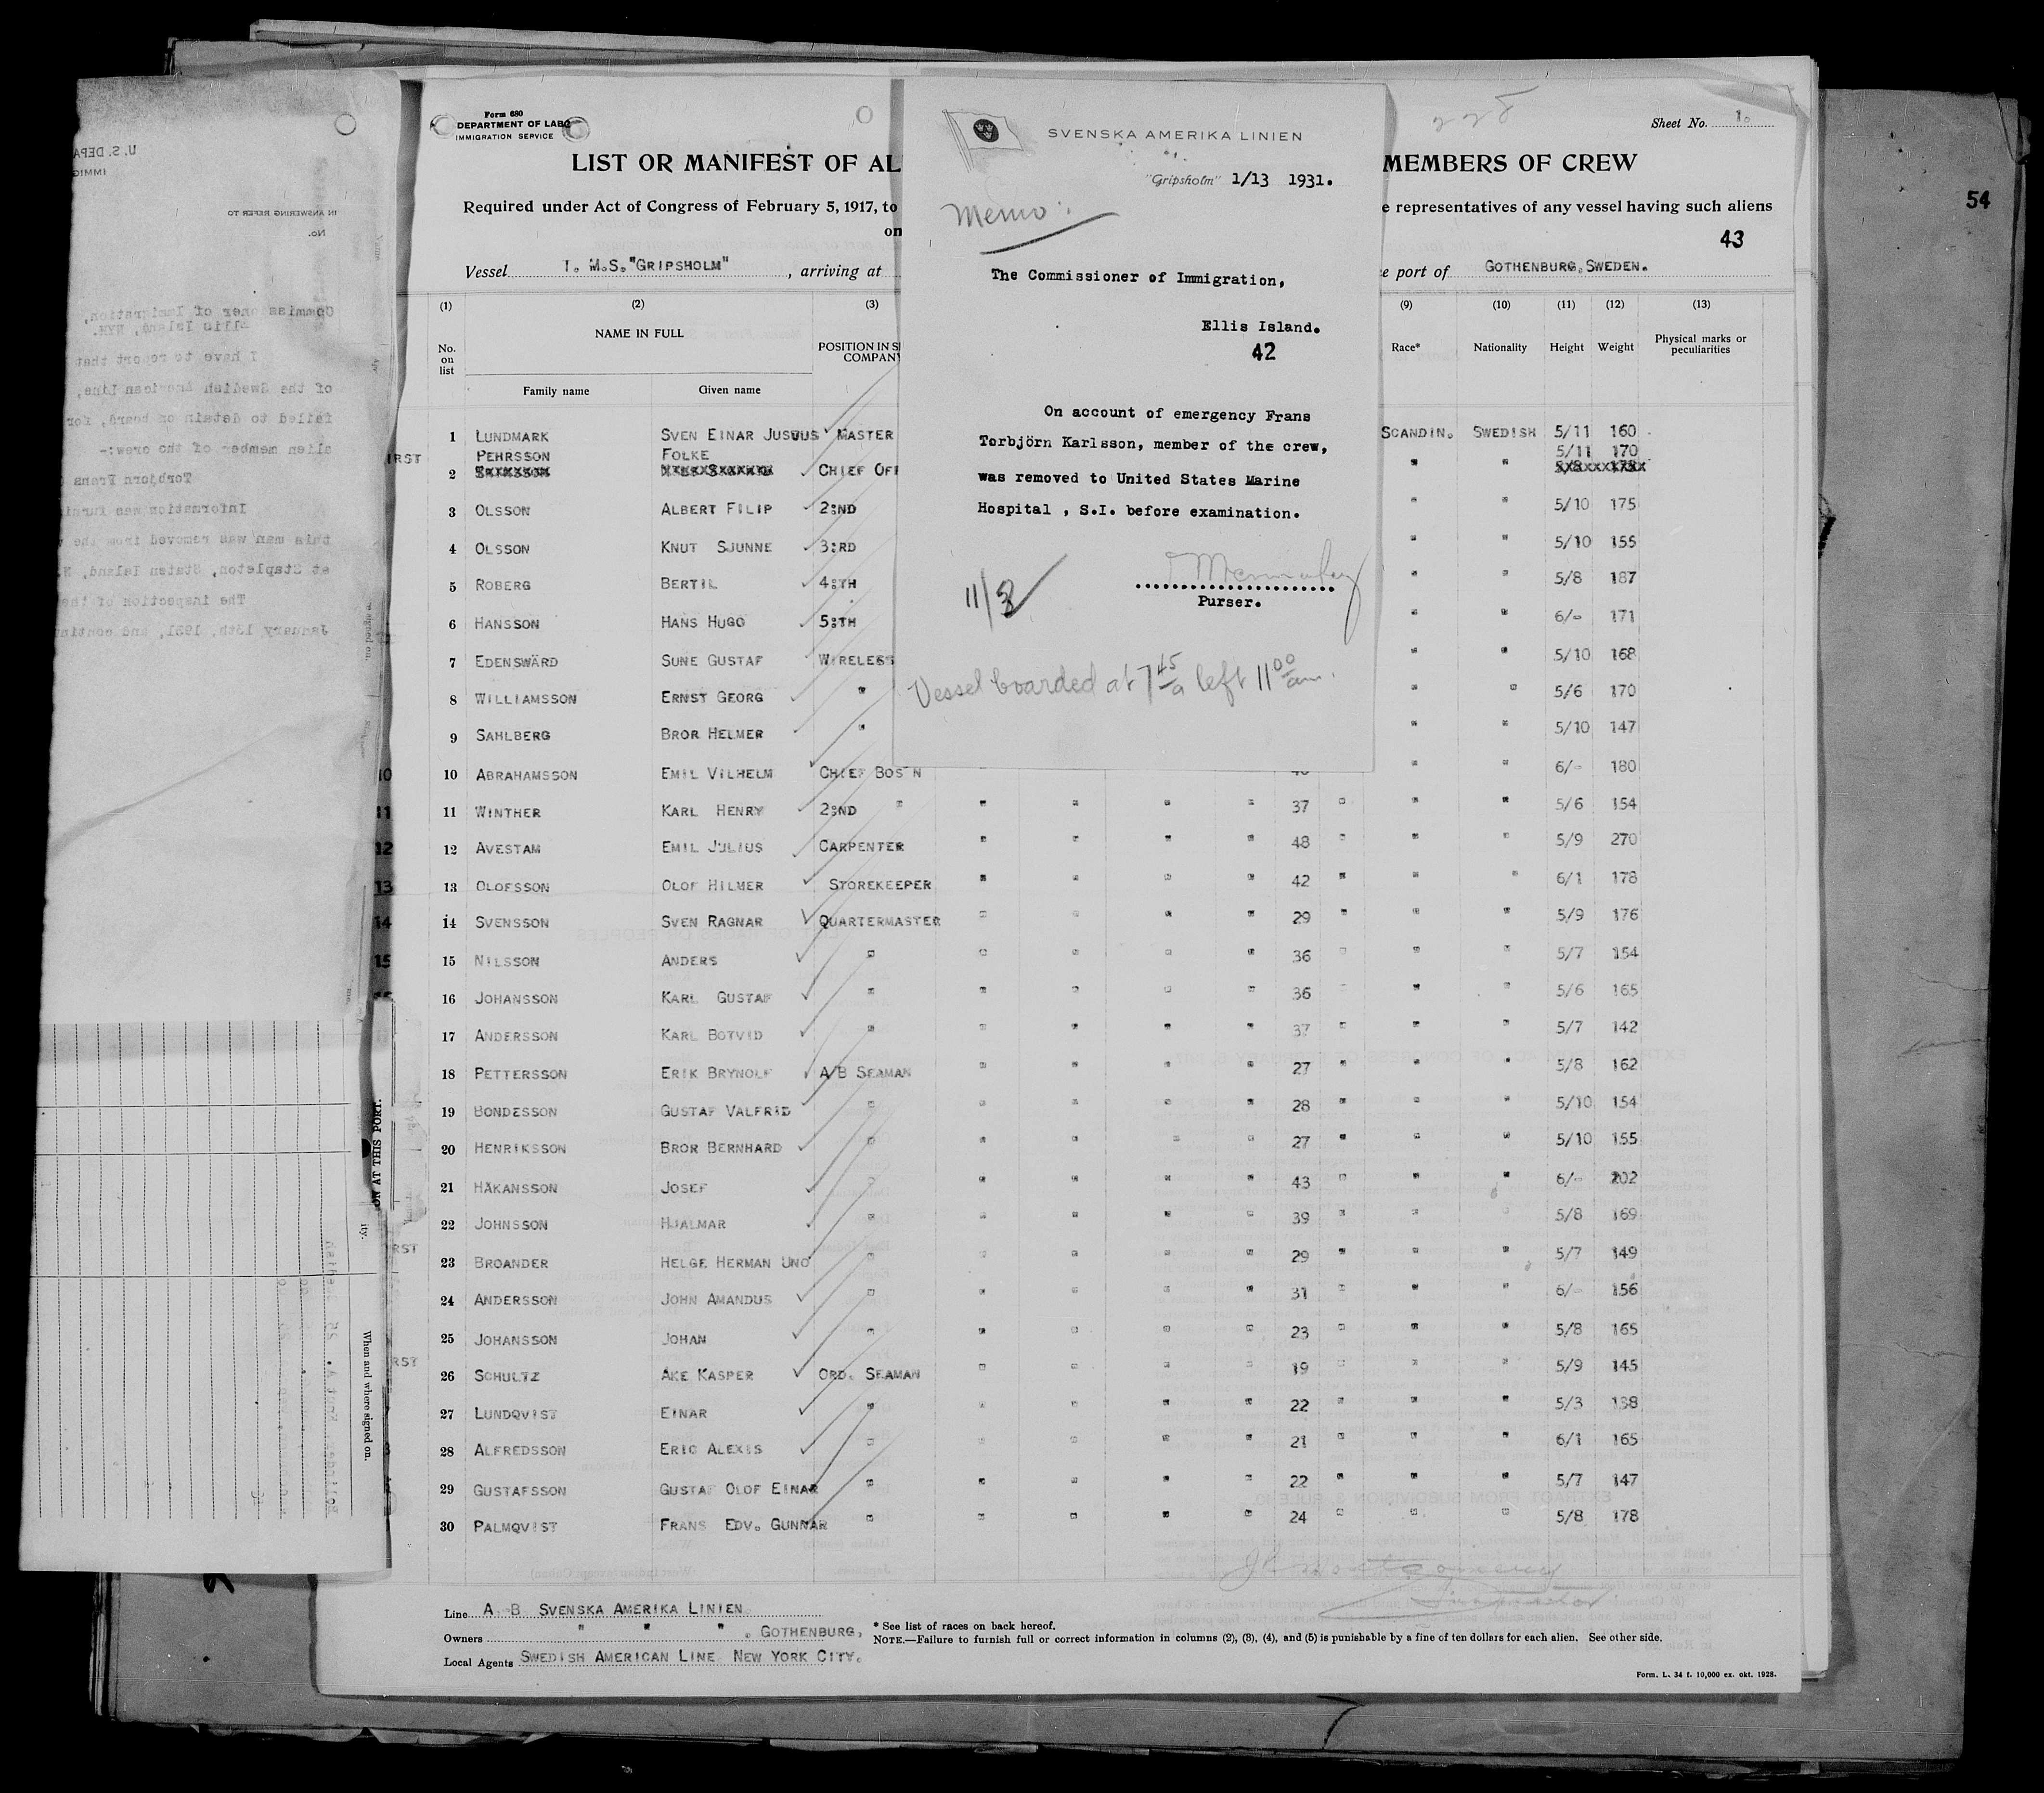 Form 680
DEPARTMENT OF LABO
IMMIGRATION SERVICE
Sheet No. 1o
LIST OR MANIFEST OF AL
MEMBERS OF CREW
Required under Act of Congress of February 5, 1917, to
e representatives of any vessel having such aliens
on
43
54
Vessel T. M.S."GRIPSHOLM" , arriving at
e port of GOTHENBURG.SWEDEN.
SVENSKA AMERIKA LINIEN
"Gripsholm" 1/13 1931.
Memo:
The Commissioner of Immigration,
Ellis Island.
42
On account of emergency Frans
Torbjörn Karlsson, member of the crew,
was removed to United States Marine
Hospital , S.I. before examination.
Purser.
11/3
Vessel boarded at 7 45 a left 11 00 am.
(1) (2) (3) (9) (10) (11) (12) (13)
No. on list NAME IN FULL POSITION IN S COMPANY Race* Nationality Height Weight Physical marks or peculiarities
Family name Given name
1 LUNDMARK SVEN EINAR JUSTUS MASTER SCANDIN. SWEDISH 5/11 160
PEHRSSON FOLKE 5/11 170
2 CHIEF OFF " "
3 OLSSON ALBERT FILIP 2:ND " " 5/10 175
4 OLSSON KNUT SJUNNE 3:RD " " 5/10 155
5 ROBERG BERTIL 4:TH " " 5/8 187
6 HANSSON HANS HUGO 5:TH " " 6/- 171
7 EDENSWÄRD SUNE GUSTAF WIRELESS " " 5/10 168
8 WILLIAMSSON ERNST GEORG " " " 5/6 170
9 SAHLBERG BROR HELMER " " " 5/10 147
10 ABRAHAMSSON EMIL VILHELM CHIEF BOS'N " " 6/- 180
11 WINTHER KARL HENRY 2:ND " " " " " 37 " " " 5/6 154
12 AVESTAM EMIL JULIUS CARPENTER " " " " 48 " " " 5/9 270
13 OLOFSSON OLOF HILMER STOREKEEPER " " " " 42 " " " 6/1 178
14 SVENSSON SVEN RAGNAR QUARTERMASTER " " " " 29 " " " 5/9 176
15 NILSSON ANDERS " " " " " 36 " " " 5/7 154
16 JOHANSSON KARL GUSTAF " " " " " 36 " " " 5/6 165
17 ANDERSSON KARL BOTVID " " " " " 37 " " " 5/7 142
18 PETTERSSON ERIK BRYNOLF A/B SEAMAN " " " " 27 " " " 5/8 162
19 BONDESSON GUSTAF VALFRID " " " " " 28 " " " 5/10 154
20 HENRIKSSON BROR BERNHARD " " " " " 27 " " " 5/10 155
21 HÅKANSSON JOSEF " " " " " 43 " " " 6/- 202
22 JOHNSSON HJALMAR " " " " " 39 " " " 5/8 169
23 BROANDER HELGE HERMAN UNO " " " " " 29 " " " 5/7 149
24 ANDERSSON JOHN AMANDUS " " " " " 31 " " " 6/- 156
25 JOHANSSON JOHAN " " " " " 23 " " " 5/8 165
26 SCHULTZ ÅKE KASPER ORD. SEAMAN " " " " 19 " " " 5/9 145
27 LUNDQVIST EINAR " " " " " 22 " " " 5/3 138
28 ALFREDSSON ERIC ALEXIS " " " " " 21 " " " 6/1 165
29 GUSTAFSSON GUSTAF OLOF EINAR " " " " " 22 " " " 5/7 147
30 PALMQVIST FRANS EDV. GUNNAR " " " " " 24 " " " 5/8 178
Line A-B SVENSKA AMERIKA LINIEN
Owners " " " . GOTHENBURG,
Local Agents SWEDISH AMERICAN LINE NEW YORK CITY.
* See list of races on back hereof.
NOTE.—Failure to furnish full or correct information in columns (2), (3), (4), and (5) is punishable by a fine of ten dollars for each alien. See other side.
Form. L. 34 f. 10,000 ex. okt. 1928.
U.S. DEPA
IMMIG
IN ANSWERING REFER TO
No.
Commissioner of Immigration,
Ellis Island, NYH.
I have to report that
of the Swedish American Line,
failed to detain on board, for
alien member of the crew:-
Torbjorn Frans
Information was furni
this man was removed from the
at Stapleton, Staten Island, N.
The inspection of the
January 13th, 1931, and contin
ON AT THIS PORT.
When and where signed on.